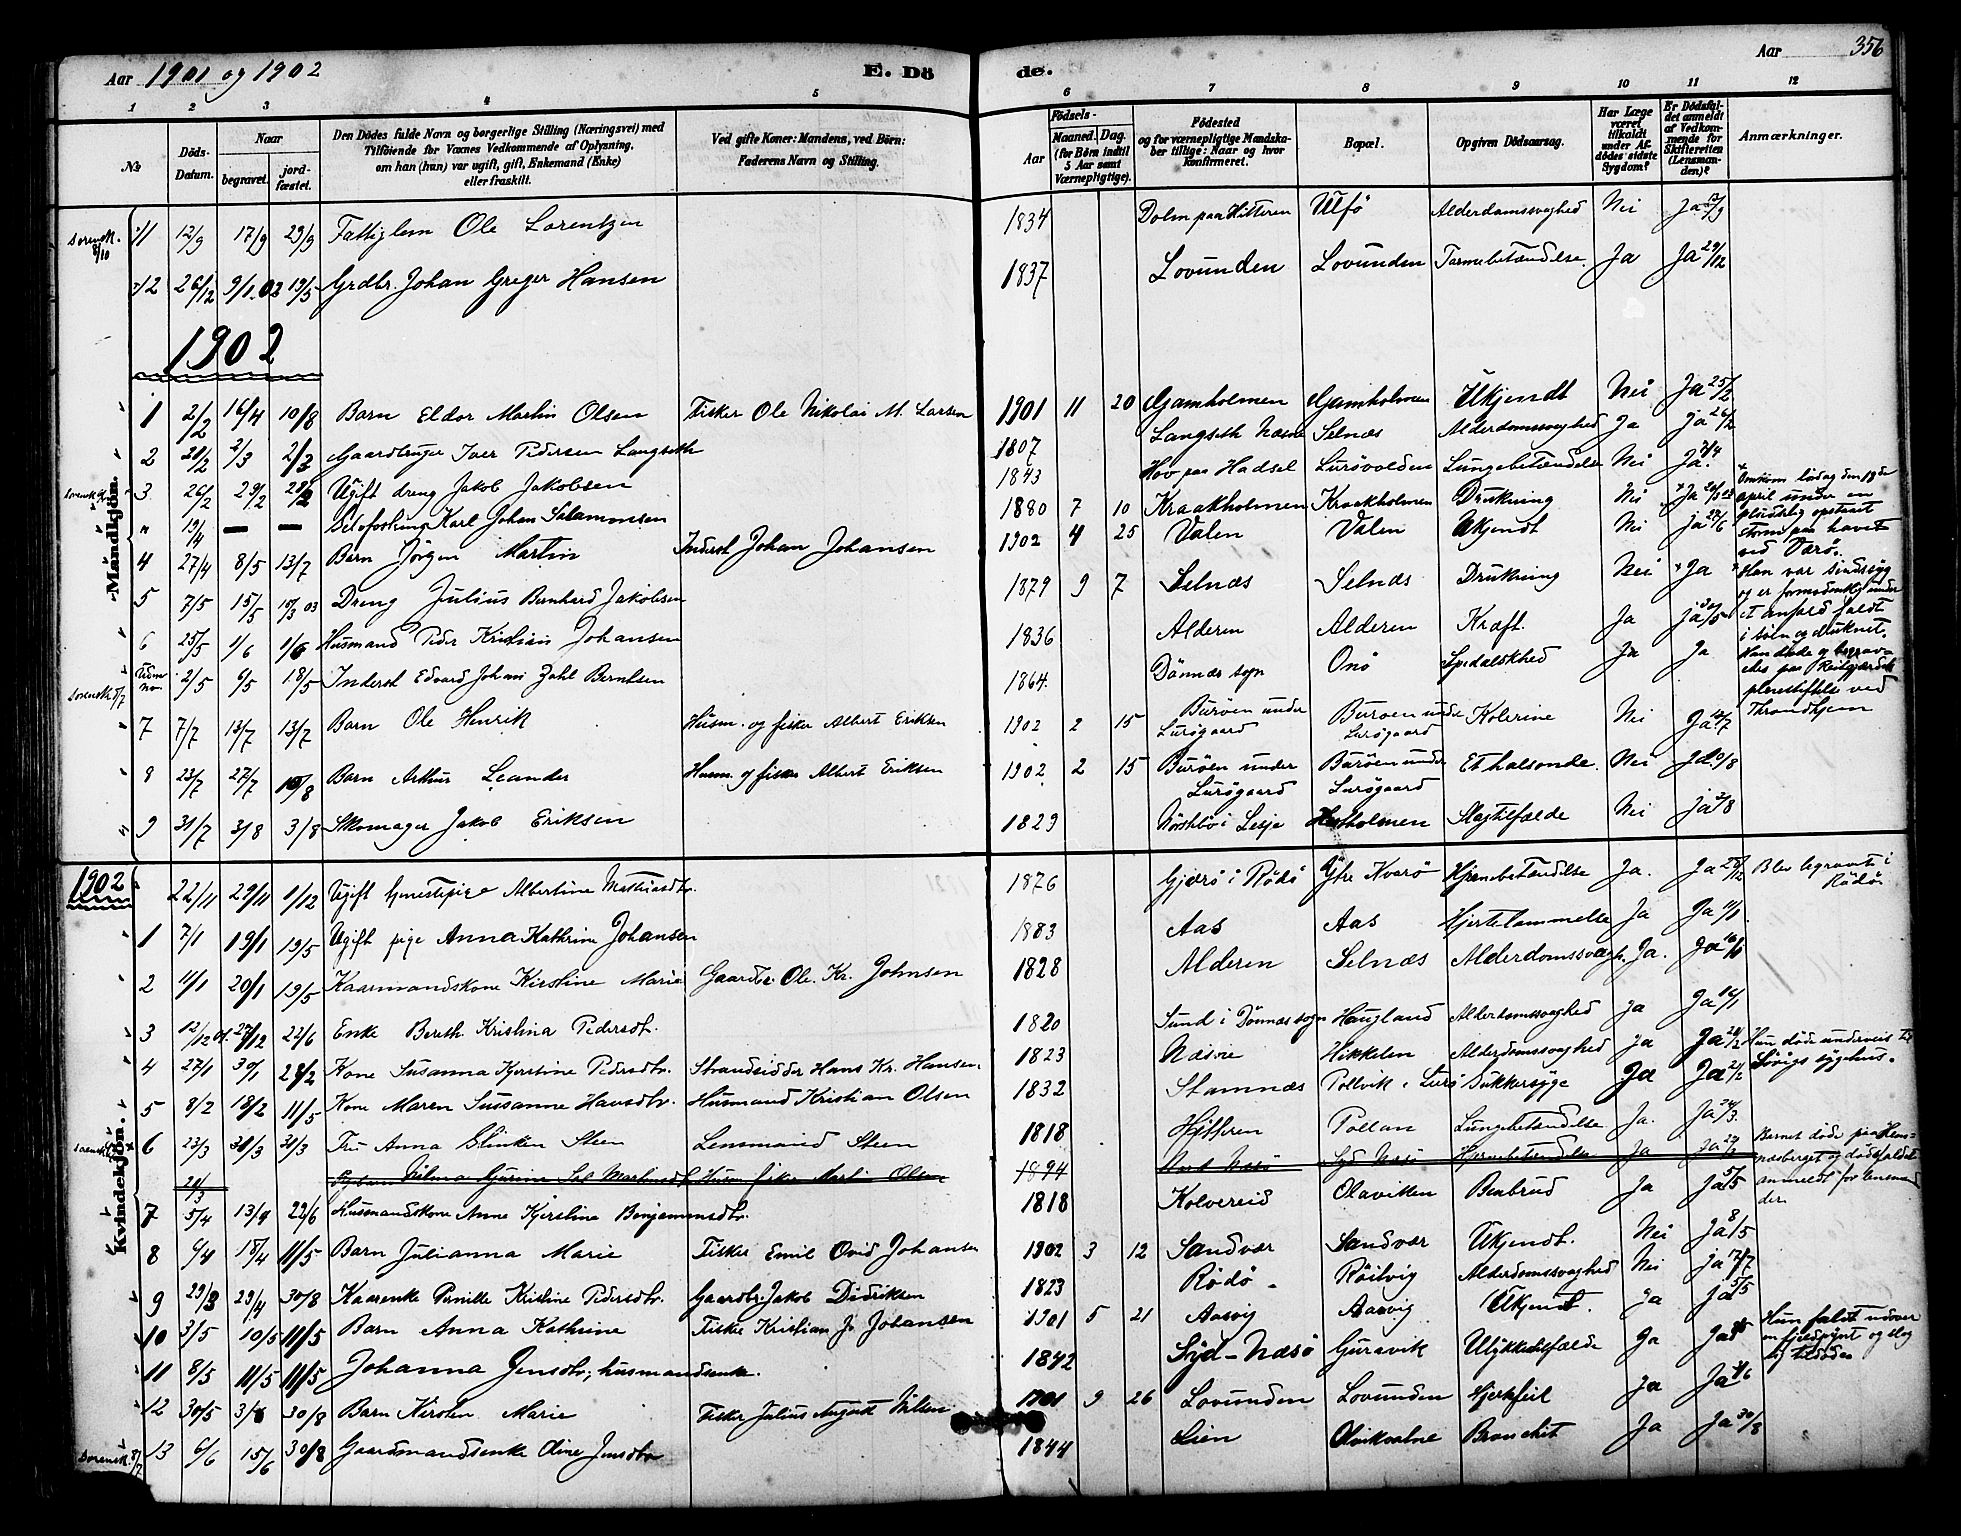 Aar 1901 og 1902
E. Dö
de.
Aar
356
1 2 3 4 5 6 7 8 9 10 11 12
No
Döds-Datum.
Naar
begravet.
jord-fæstet.
Den Dödes fulde Navn og borgerlige Stilling (Næringsvei) med
Tilföiende for Voxnes Vedkommende af Oplysning,
om han (hun) var ugift, gift, Enkemand (Enke)
eller fraskilt.
Ved gifte Koner: Mandens, ved Börn:
Faderens Navn og Stilling.
Födsels-
Aar
Maaned. Dag.
(for Börn indtil
5 Aar samt
Værnepligtige).
Födested
og for værnepligtige Mandska-
ber tillige: Naar og hvor
konfirmeret.
Bopæl.
Opgiven Dödsaarsag.
Har Læge
været
tilkaldt
under Af-
dödes sidste
Sygdom?
Er Dödsfal-
det anmeldt
af Vedkom-
mende for
Skifteretten
(Lensman-
den)?
Anmærkninger.
11 12/9 17/9 29/9 Fattiglem Ole Lorentzen 1834 Dolm paa Hitteren Ulfö Alderdomssvaghed Nei Ja
12 26/12 9/1.02 19/5 Grdbr. Johan Greger Hansen 1837 Lovunden Lovunden Tarmebetændelse. Ja Ja 29/12
1902
Mandkjön.
1 2/2 16/4 10/8 Barn Eldor Martin Olsen Fisker Ole Nikolai M. Larsen 1901 11 20 Gjamholmen Gjamholmen Ukjendt Nei Ja 25/2
2 20/2 2/3 2/3 Gaardbruger Iver Pedersen Langseth 1807 Langseth Næsne Selnæs Alderdomssvaghed Ja ja 26/2
3 26/2 29/2 Ugift dreng Jakob Jakobsen 1843 Hov paa Hadsel Lurövolden Lungebetændelse Nei Ja
" 19/4 — — Karl Johan Salamonsen 1880 7 10 Kraakholmen Kraakholmen Drukning Nei Ja
4 27/4 8/5 13/7 Barn Jörgen Martin Inderst Johan Johansen 1902 4 25 Valen Valen Ukjendt Nei ja
5 7/5 15/5 10/3 03 Dreng Julius Bernhard Jakobsen 1879 9 7 Selnæs Selnæs Drukning Nei Ja
6 25/5 1/6 1/6 Husmand Peder Kristian Johansen 1836 Alderen Alderen Kræft. Ja ja 30/5
2/5 9/5 18/5 Inderst Edvard Johan Zahl Berntsen 1864. Dönnæs sogn Onö Spedalskhed Ja Ja
7 7/7 13/7 13/7 Barn Ole Henrik Husm. og fisker Albert Eriksen 1902 2 15 Buröen under Lurögaard Buröen under Lurögaard Kolerine Nei Ja
8 23/7 27/7 10/8 Barn Arthur Leander Husm. og fisker Albert Eriksen 1902 2 15 Buröen under Lurögaard Buröen under Lurögaard Et halsonde. Nei Ja
9 31/7 3/8 3/8 Skomager Jakob Eriksen 1829 i Lesje Hestholmen Slagtilfælde Nei ja
Omkom lördag den 19de
april under en
pludselig opstaaet
storm paa havet
ved Værö.
Han var sindssyg
og er formodentlig under
et anfald faldt
i söen og druknet.
Han döde og begrav-
edes paa Reitgjærdets
pleiestiftelse ved
Throndhjem
1902
Kvindekjön.
22/11 29/11 1/12 Ugift tjenestepige Albertine Mathiasdtr. 1876 Gjærö i Rödö Ytre Kvarö Hjernebetændelse Ja. Ja Blev begravet i Rödö.
1 7/1 19/1 19/5 Ugift pige Anna Kathrine Johansen 1883 Aas Aas Hjertelammelse Ja Ja 11/1
2 11/1 20/1 19/5 Kaarmandskone Kirstine Marie Gaardbr. Ole Kr. Johnsen 1828 Alderen Selnæs Alderdomssvagh. Ja. Ja
3 12/12 01. 27/12 22/6 Enke Bereth Kristina Pedersdtr. 1820 Sund i Dönnæs sogn Haugland Alderdomssvaghed Ja Ja
4 27/1 30/1 Kone Susanna Kjerstine Pedersdtr. Strandsidder Hans Kr. Hansen. 1823 Næsne Hikkelen Alderdomssvaghed Ja Ja Hun döde underveis til sygehus.
5 8/2 18/2 11/5 Kone Maren Susanne Hansdtr. Husmand Kristian Olsen 1832 Stamnæs Pollvik i Lurö Sukkersyge Ja Ja
6 23/3 30/3 31/3 Fru Anna Steen Lensmand Steen 1818 Hitteren Pollan Lungebetændelse Ja. Ja
1894 Hjernebetændelse Ja Ja
7 5/4 13/4 22/6 Husmandskone Anne Kjerstine Benjaminsdtr. 1818 Kolvereid Olaviken Benbrud Ja Ja 5/5
8 6/4 18/4 11/5 Barn Julianna Marie Fisker Emil Ovid Johansen 1902 3 12 Sandvær Sandvær Ukjendt. Nei Ja 8/5
9 29/3 29/4 30/8 Kaarenke Pernille Kristine Pedersdtr. Gaardbr. Jakob Didriksen 1823 Rödö Röitvig Alderdomssvaghed Nei ja 7/7
10 3/5 10/5 11/5 Barn Anna Kathrine Fisker Kristian J. Johansen 1901 5 21 Aasvig Aasvig Ukjendt. Ja Ja 5/5
11 8/5 11/5 11/5 Johanna Jensdtr, husmandsenke. 1842 Syd-Næsö Guravik Ulykkestilfælde Ja Ja
12 30/5 30/8 Barn Kirsten Marie Fisker Julius August Nilsen 1901 9 26 Lovunden Lovunden Hjertefeil Ja Ja
13 6/6 15/6 30/8 Gaardmandsenke Oline Jensdtr 1844 Lien Bronchit Ja Ja
Barnet döde paa Hems-
næsberget og dödsfaldet
anmeldt for lensman-
den.
Hun faldt udover
en fjeldpynt og slog
sig tildöde